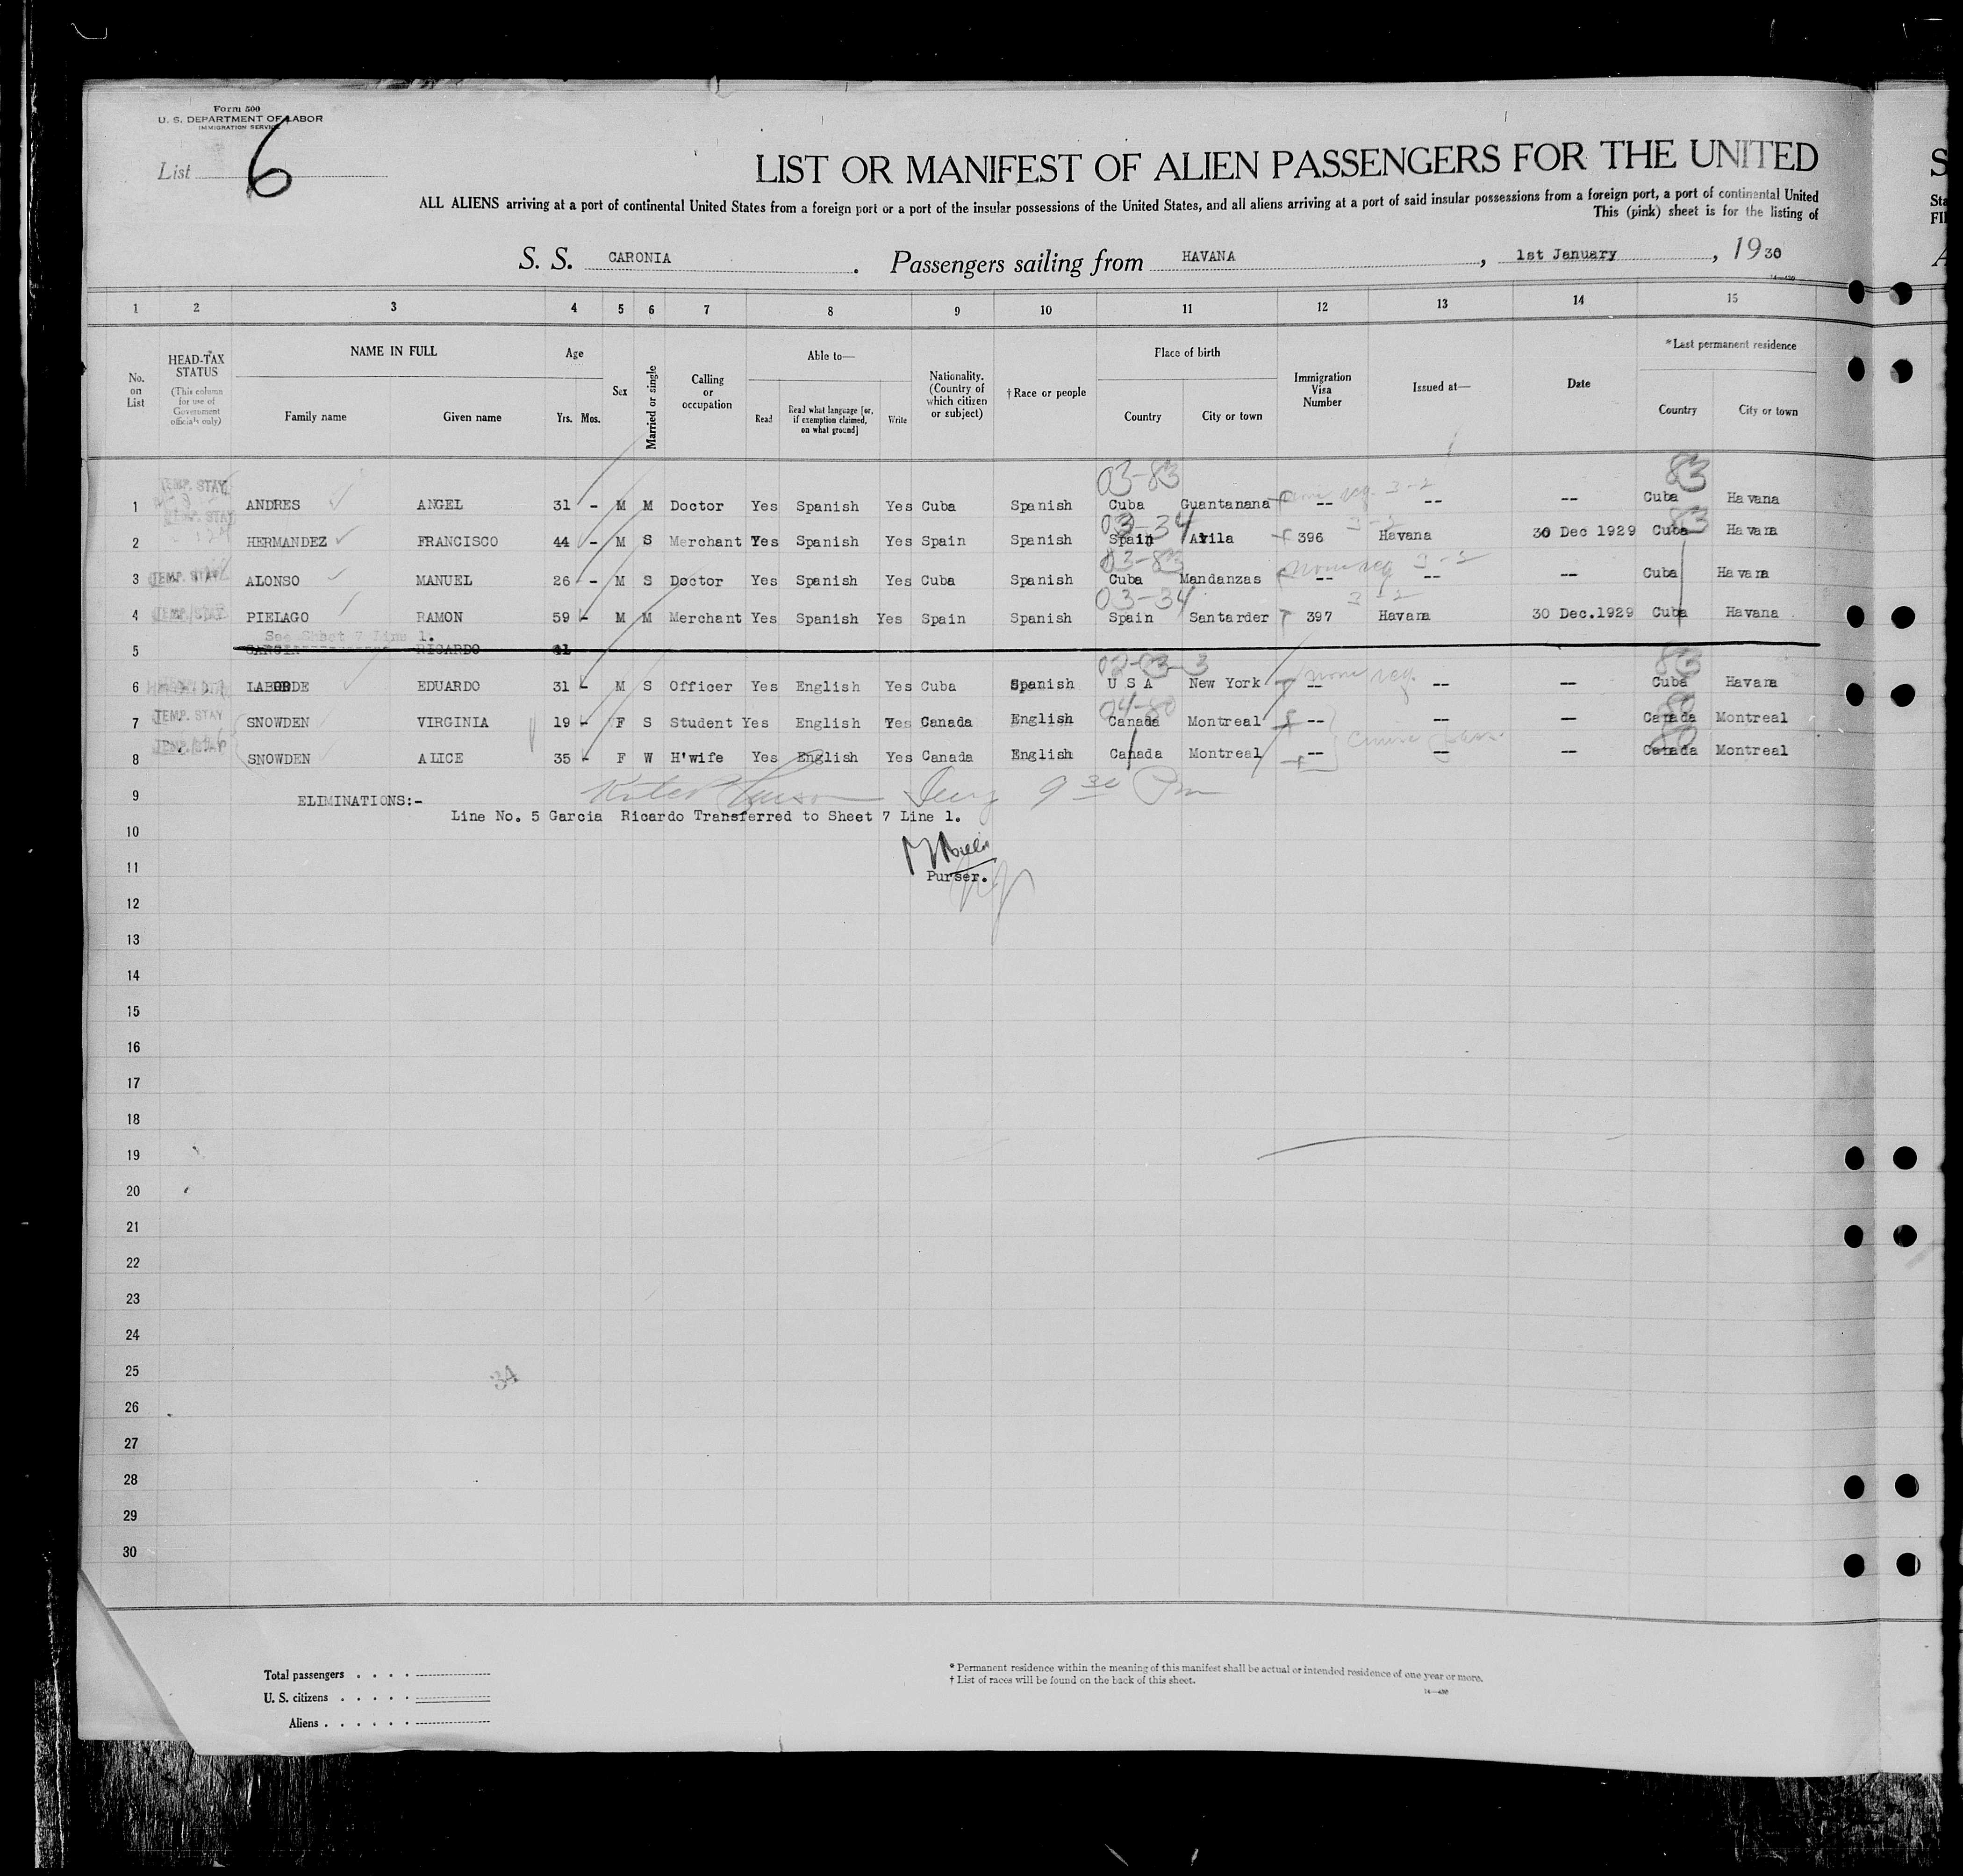 Form 500
U. S. DEPARTMENT OF LABOR
IMMIGRATION SERVICE
List 6
LIST OR MANIFEST OF ALIEN PASSENGERS FOR THE UNITED
ALL ALIENS arriving at a port of continental United States from a foreign port or a port of the insular possessions of the United States, and all aliens arriving at a port of said insular possessions from a foreign port, a port of continental United
This (pink) sheet is for the listing of
S. S. CARONIA . Passengers sailing from HAVANA , 1st January , 1930
1 2 3 4 5 6 7 8 9 10 11 12 13 14 15
No. on List
HEAD-TAX STATUS (This column for use of Government officials only)
NAME IN FULL
Family name Given name
Age
Yrs. Mos.
Sex
Married or single
Calling or occupation
Able to—
Read Read what language [or, if exemption claimed, on what ground] Write
Nationality. (Country of which citizen or subject)
† Race or people
Place of birth
Country City or town
Immigration Visa Number
Issued at—
Date
* Last permanent residence
Country City or town
TEMP. STAY 03-83 83
1 ANDRES ANGEL 31 - M M Doctor Yes Spanish Yes Cuba Spanish Cuba Guantanana -- -- -- Cuba Havana
TEMP. STAY 03-34 83
2 HERMANDEZ FRANCISCO 44 - M S Merchant Yes Spanish Yes Spain Spanish Spain Avila 396 Havana 30 Dec 1929 Cuba Havana
03-83
3 TEMP. STAY ALONSO MANUEL 26 - M S Doctor Yes Spanish Yes Cuba Spanish Cuba Mandanzas -- -- -- Cuba Havana
03-34
4 TEMP. STAY PIELAGO RAMON 59 - M M Merchant Yes Spanish Yes Spain Spanish Spain Santarder 397 Havana 30 Dec.1929 Cuba Havana
See Sheet 7 Line 1.
5 GARCIA RICARDO 41
02-03-3 83
6 LABORDE EDUARDO 31 - M S Officer Yes English Yes Cuba Spanish U S A New York -- -- -- Cuba Havana
04-80 80
7 TEMP. STAY SNOWDEN VIRGINIA 19 - F S Student Yes English Yes Canada English Canada Montreal -- -- -- Canada Montreal
80
8 TEMP. STAY SNOWDEN ALICE 35 - F W H'wife Yes English Yes Canada English Canada Montreal -- -- -- Canada Montreal
9 ELIMINATIONS:- 9 30 Pm
Line No. 5 Garcia Ricardo Transferred to Sheet 7 Line 1.
10
11 Purser.
12
13
14
15
16
17
18
19
20
21
22
23
24
25 34
26
27
28
29
30
Total passengers . . . .
U. S. citizens . . . . .
Aliens . . . . . .
* Permanent residence within the meaning of this manifest shall be actual or intended residence of one year or more.
† List of races will be found on the back of this sheet.